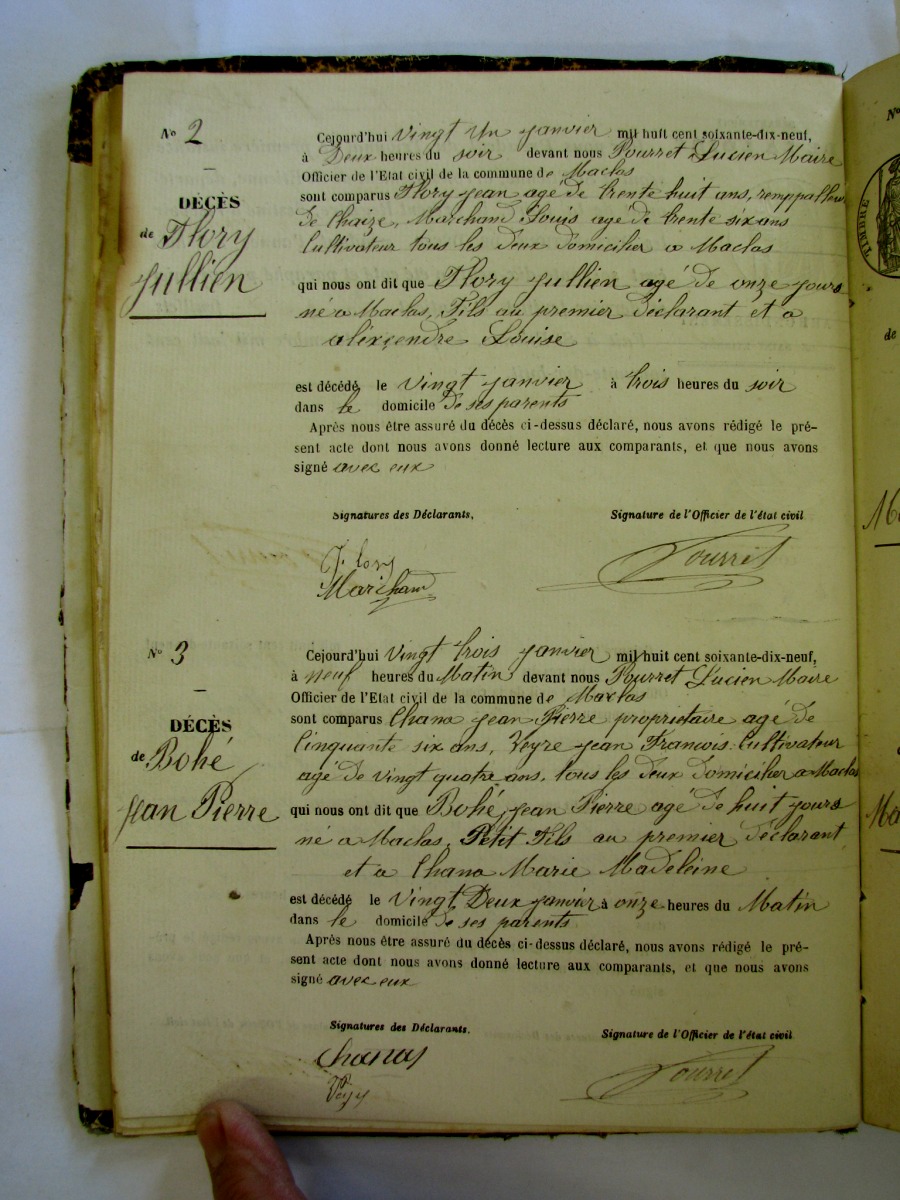 N° 2
DÉCÈS
de Flory
Jullien
Cejourd'hui vingt Un janvier mil huit cent soixante-dix-neuf,
à Deux heures du soir devant nous Pourret Lucien Maire
Officier de l'Etat civil de la commune de Maclas
sont comparus Flory jean agé de trente huit ans, rempailleur
de Chaize, Marchand Louis agé de trente six ans
Cultivateur tous les deux domicilier a Maclas
qui nous ont dit que Flory Jullien agé de onze jours
né a Maclas, Fils au premier déclarant et a
Louise
est décédé le vingt janvier à trois heures du soir
dans le domicile de ses parents
Après nous être assuré du décès ci-dessus déclaré, nous avons rédigé le pré-
sent acte dont nous avons donné lecture aux comparants, et que nous avons
signé avec eux
Signatures des Déclarants,
Signature de l'Officier de l'état civil
Flory
Marchand
Pourret
N° 3
DÉCÈS
de Bohé
Jean Pierre
Cejourd'hui vingt trois janvier mil huit cent soixante-dix-neuf,
à neuf heures du Matin devant nous Pourret Lucien Maire
Officier de l'Etat civil de la commune de Maclas
sont comparus Chana jean Pierre propriétaire agé de
Cinquante six ans, Veyre jean Francois Cultivateur
agé de vingt quatre ans, tous les deux domicilier a Maclas
qui nous ont dit que Bohé, jean Pierre agé de huit jours
né a Maclas, Petit Fils au premier déclarant
et a Chana Marie Madeleine
est décédé le vingt Deux janvier à onze heures du Matin
dans le domicile de ses parents
Après nous être assuré du décès ci-dessus déclaré, nous avons rédigé le pré-
sent acte dont nous avons donné lecture aux comparants, et que nous avons
signé avec eux
Signatures des Déclarants.
Signature de l'Officier de l'état civil
Chanas
Pourret
N°
TIMBRE
de
Ma